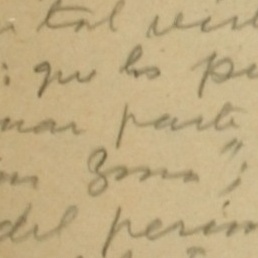 tal vis
: que los pe
mar parte
Zona";
del perím